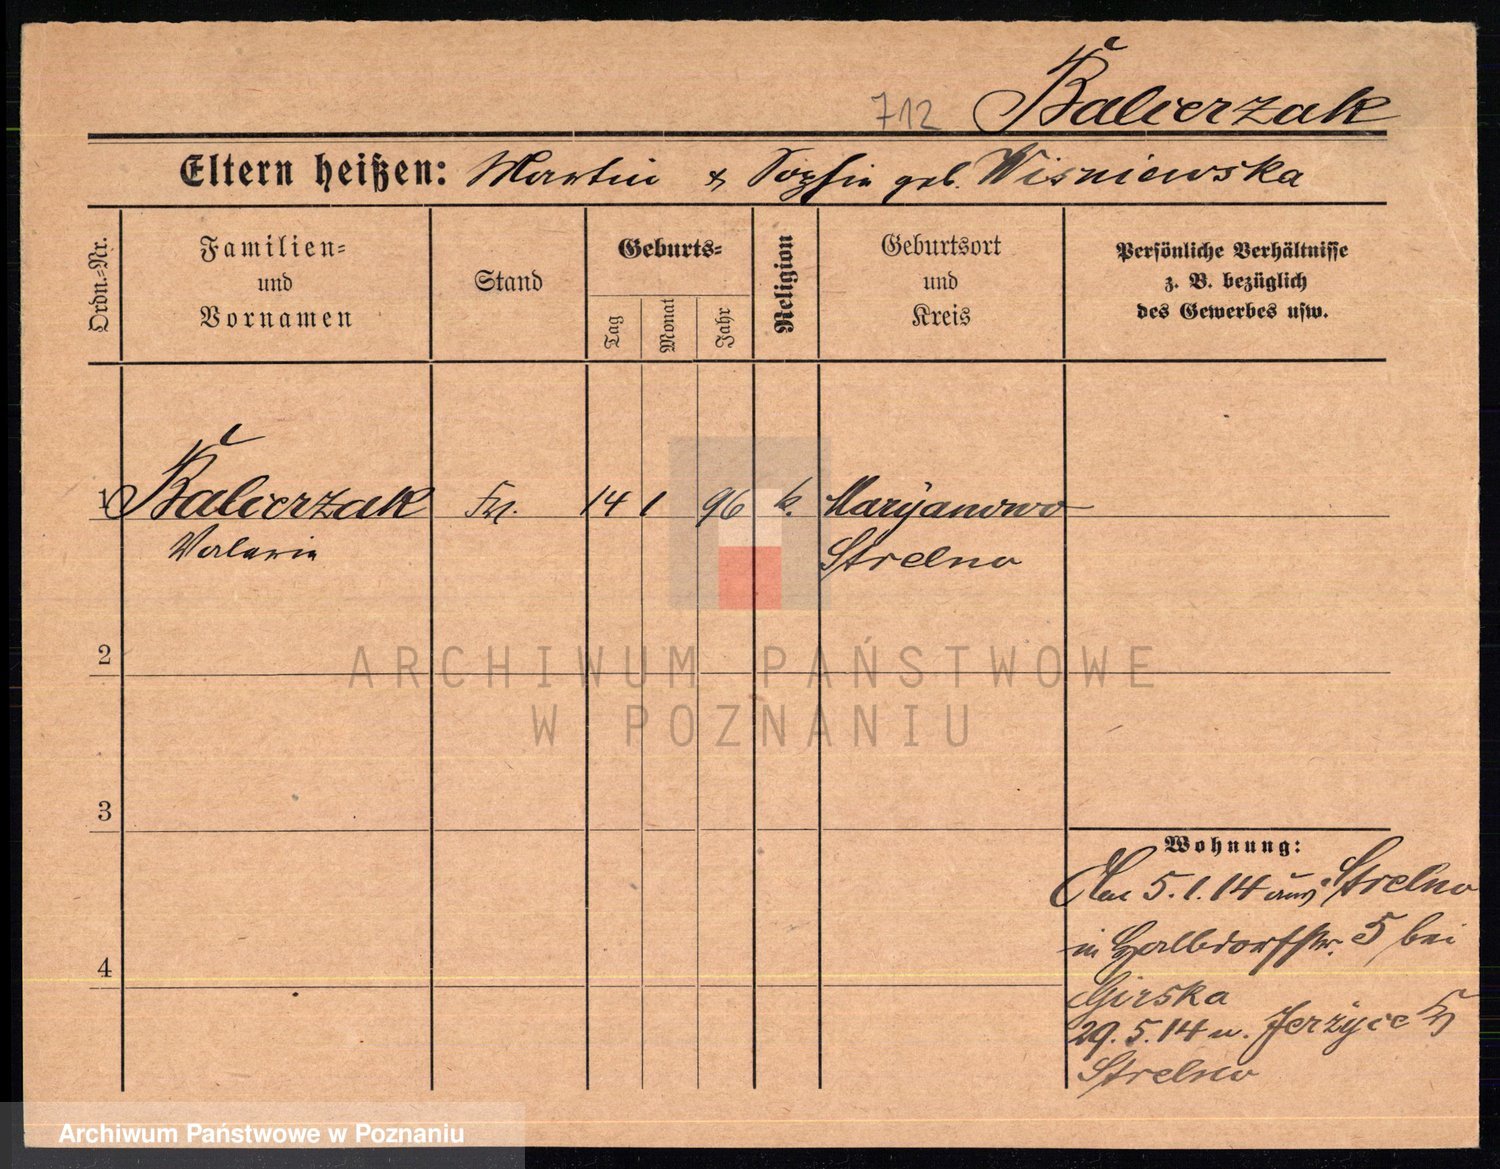 712 Balcerzak
Eltern heißen: Martin & Sophie geb. Wisniewska
Ordn.-Nr.
Familien-
und
Vornamen
Stand
Geburts-
Tag
Monat
Jahr
Religion
Geburtsort
und
Kreis
Persönliche Verhältnisse
z. B. bezüglich
des Gewerbes usw.
1 Balcerzak 14 1 96 k. Maryanowo
Valerie Strelno
2
3
4
Wohnung:
Am 5.1.14 aus Strelno
in Halbdorfstr. 5 bei
Girska
29.5.14 n. Jerzyce
Strelno
ARCHIWUM PAŃSTWOWE
W POZNANIU
Archiwum Państwowe w Poznaniu